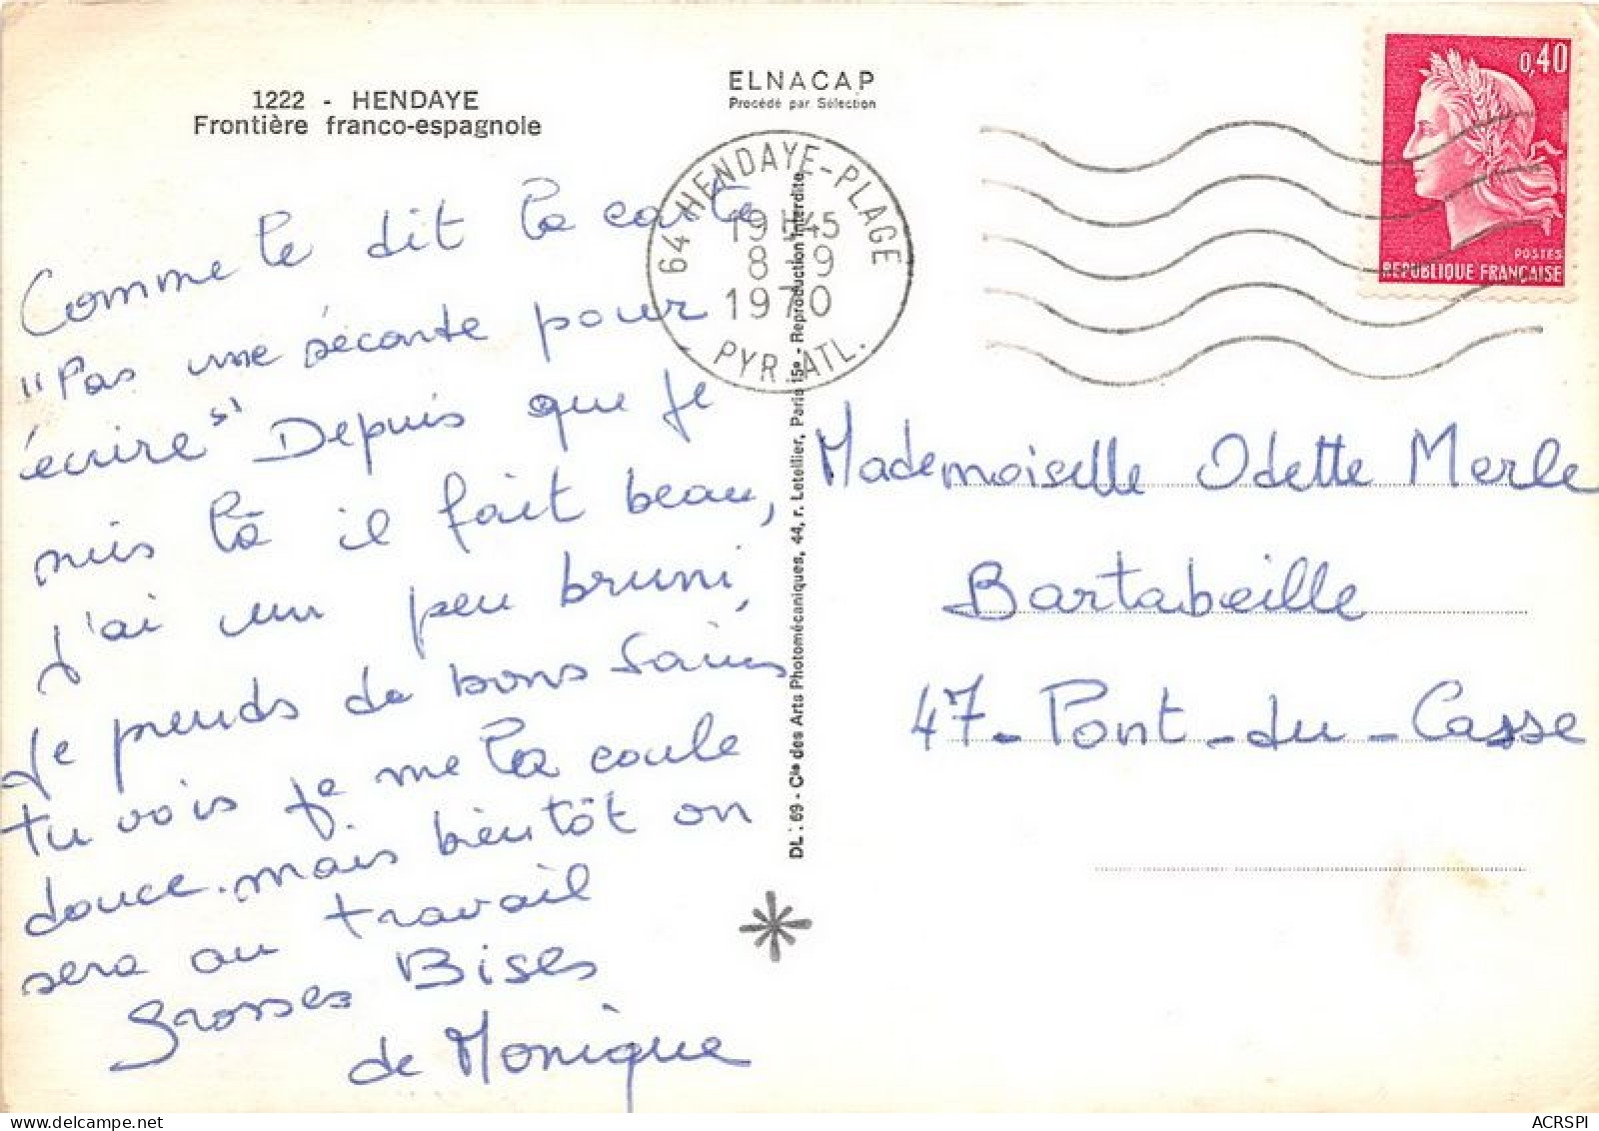 1222 - HENDAYE
Frontière franco-espagnole
ELNACAP
Procédé par Sélection
64 HENDAYE-PLAGE
19H45
8-9
1970
PYR. ATL.
0,40
POSTES
REPUBLIQUE FRANÇAISE
Comme le dit la carte
"Pas une séconde pour
écrire" Depuis que je
suis là il fait beau,
j'ai un peu bruni,
je prends de bons bains
tu vois je me la coule
douce. mais bientôt on
sera au travail
Grosses Bises
de Monique
DL : 69 - Cie des Arts Photomécaniques, 44, r. Letellier, Paris 15e - Reproduction interdite
Mademoiselle Odette Merle
Bartabeille
47-Pont-du-Casse
ACRSPI